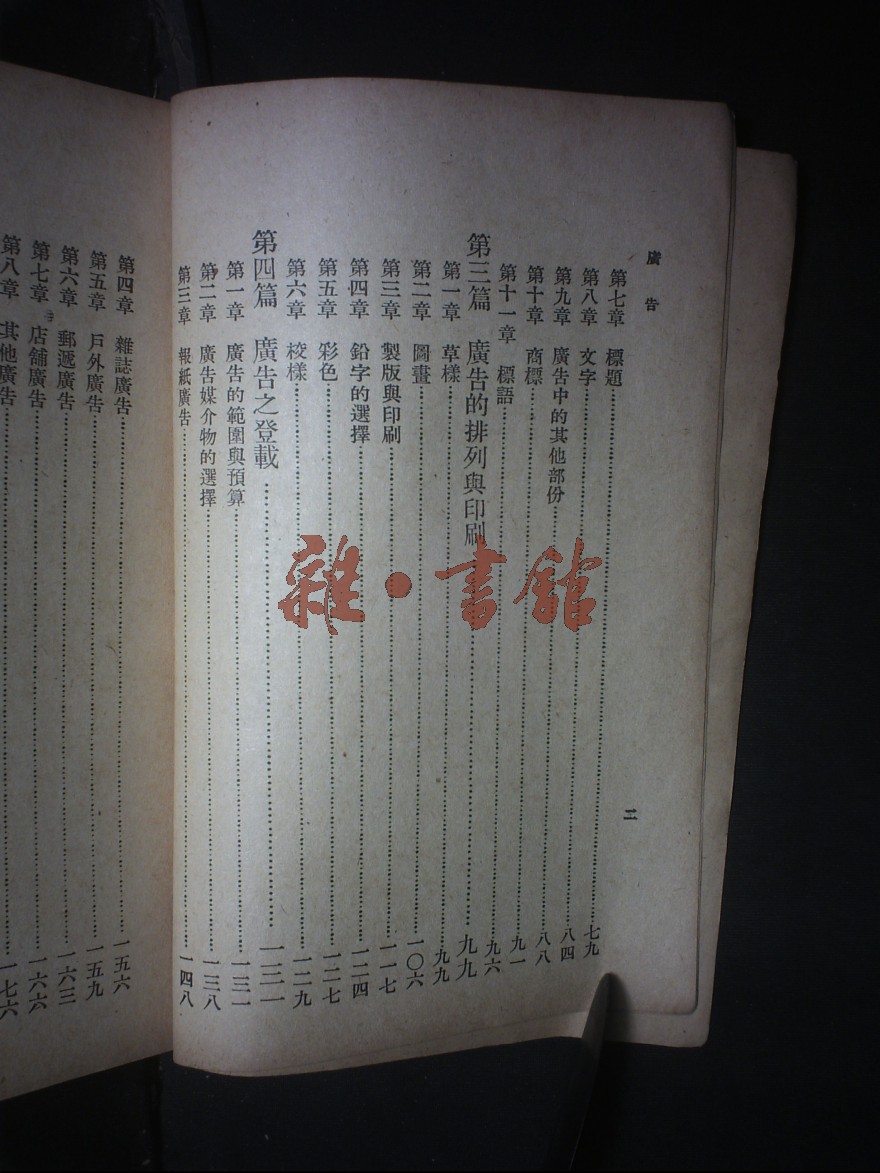 廣告
二
第七章 標題……七九
第八章 文字……八四
第九章 廣告中的其他部份……八八
第十章 商標……九一
第十一章 標語……九六
第三篇 廣告的排列與印刷……九九
第一章 草樣……九九
第二章 圖畫……一〇六
第三章 製版與印刷……一一七
第四章 鉛字的選擇……一二四
第五章 彩色……一二七
第六章 校樣……一二九
第四篇 廣告之登載……一三一
第一章 廣告的範圍與預算……一三一
第二章 廣告媒介物的選擇……一三八
第三章 報紙廣告……一四八
第四章 雜誌廣告……一五六
第五章 戶外廣告……一五九
第六章 郵遞廣告……一六三
第七章 店舖廣告……一六六
第八章 其他廣告……一七六
雜·書館